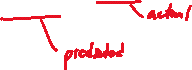 actual
predicted